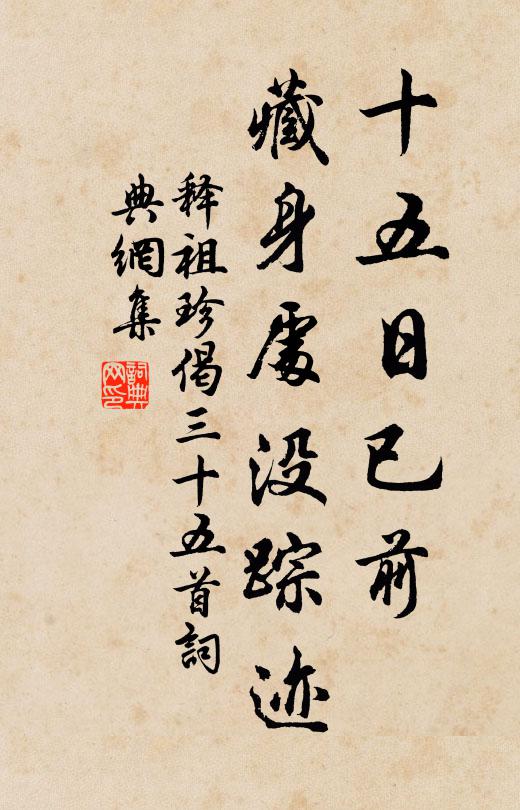 十五日已前
藏身處没踪迹
释祖珍偈三十五首詞
典網集
詞典网印